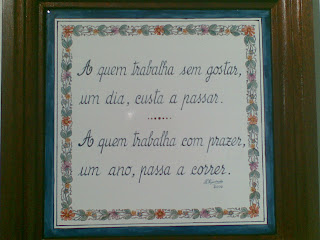 A quem trabalha sem gostar,
um dia, custa a passar.
A quem trabalha com prazer,
um ano, passa a correr.